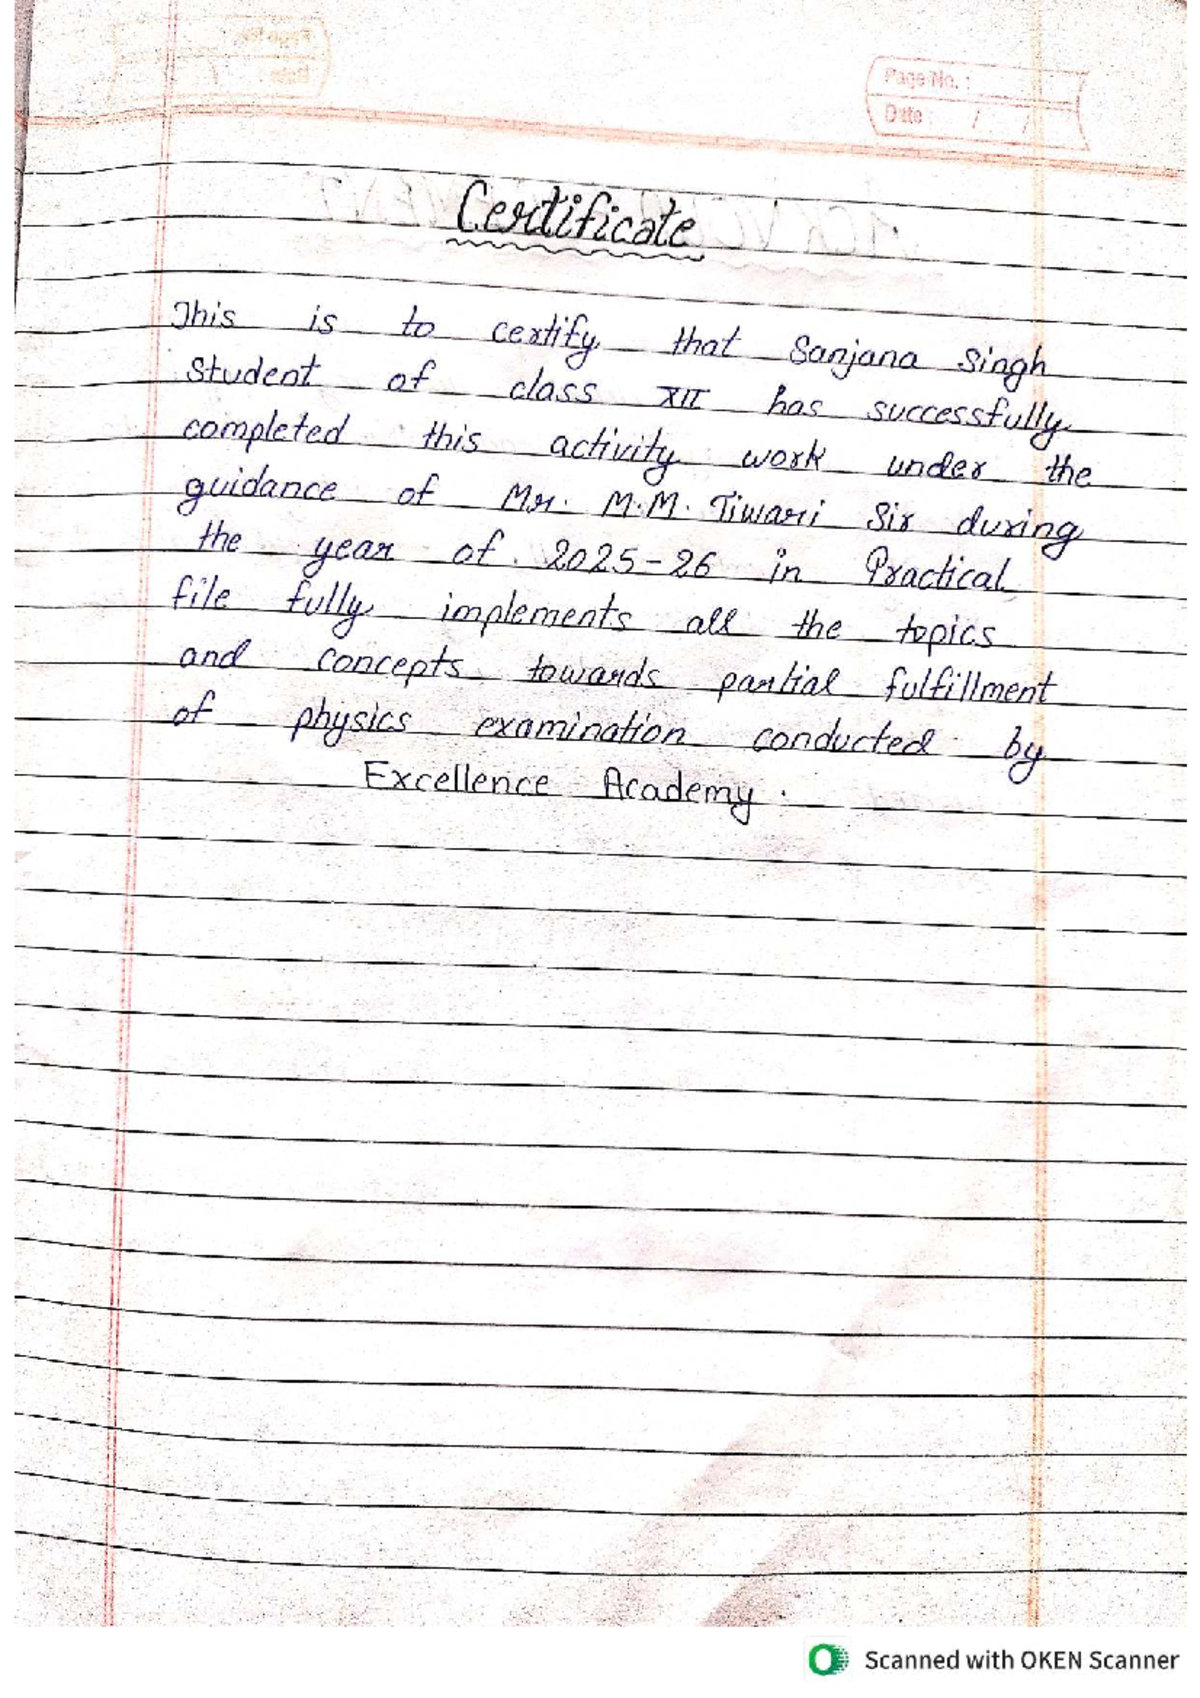 Page No. :
Date : / /
Certificate
This is to certify that Sanjana Singh
Student of class XII has successfully
completed this activity work under the
guidance of Mr. M.M. Tiwari Sir during
the year of 2025-26 in Practical
file fully implements all the topics
and concepts towards partial fulfillment
of physics examination conducted by
Excellence Academy.
Scanned with OKEN Scanner